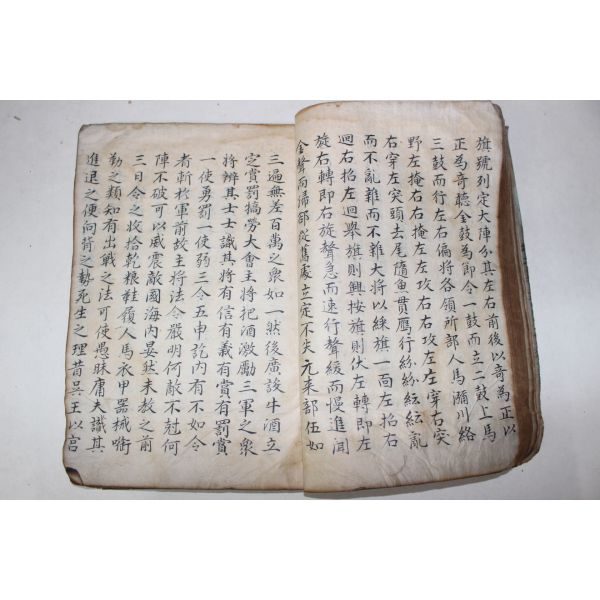 旗號列定大陣分其左右前後以奇為正以
正為奇聽金鼓為節令一鼓而立二鼓上馬
三鼓而行左右偏將各領所部人馬滿川絡
野左掩右右掩左左攻右右攻左左穿右突
右穿左突頭去尾隨魚貫鴈行紛紛紜紜亂
而不亂雜而不雜大將以綵旗一面左招右
迴右招左迴舉旗則興按旗則伏左轉即左
旋右轉即右旋聲急而速行聲緩而慢進聞
金聲而歸部從舊處立定不失元來部伍如
三遍無差百萬之衆如一然後廣設牛酒立
定賞罰犒勞大會主將把酒激勵三軍之衆
將辨其士士識其將有信有義有賞有罰賞
一使勇罰一使弱三令五申訖內有不如令
者斬於軍前故主將法令嚴明何敵不尅何
陣不破可以威震敵國海內晏然未敎之前
三日令之收拾乾粮鞋履人馬衣甲器械嚼
勒之類知有出戰之法可使愚昧庸夫識其
進退之便向背之勢死生之理昔吳王以宮